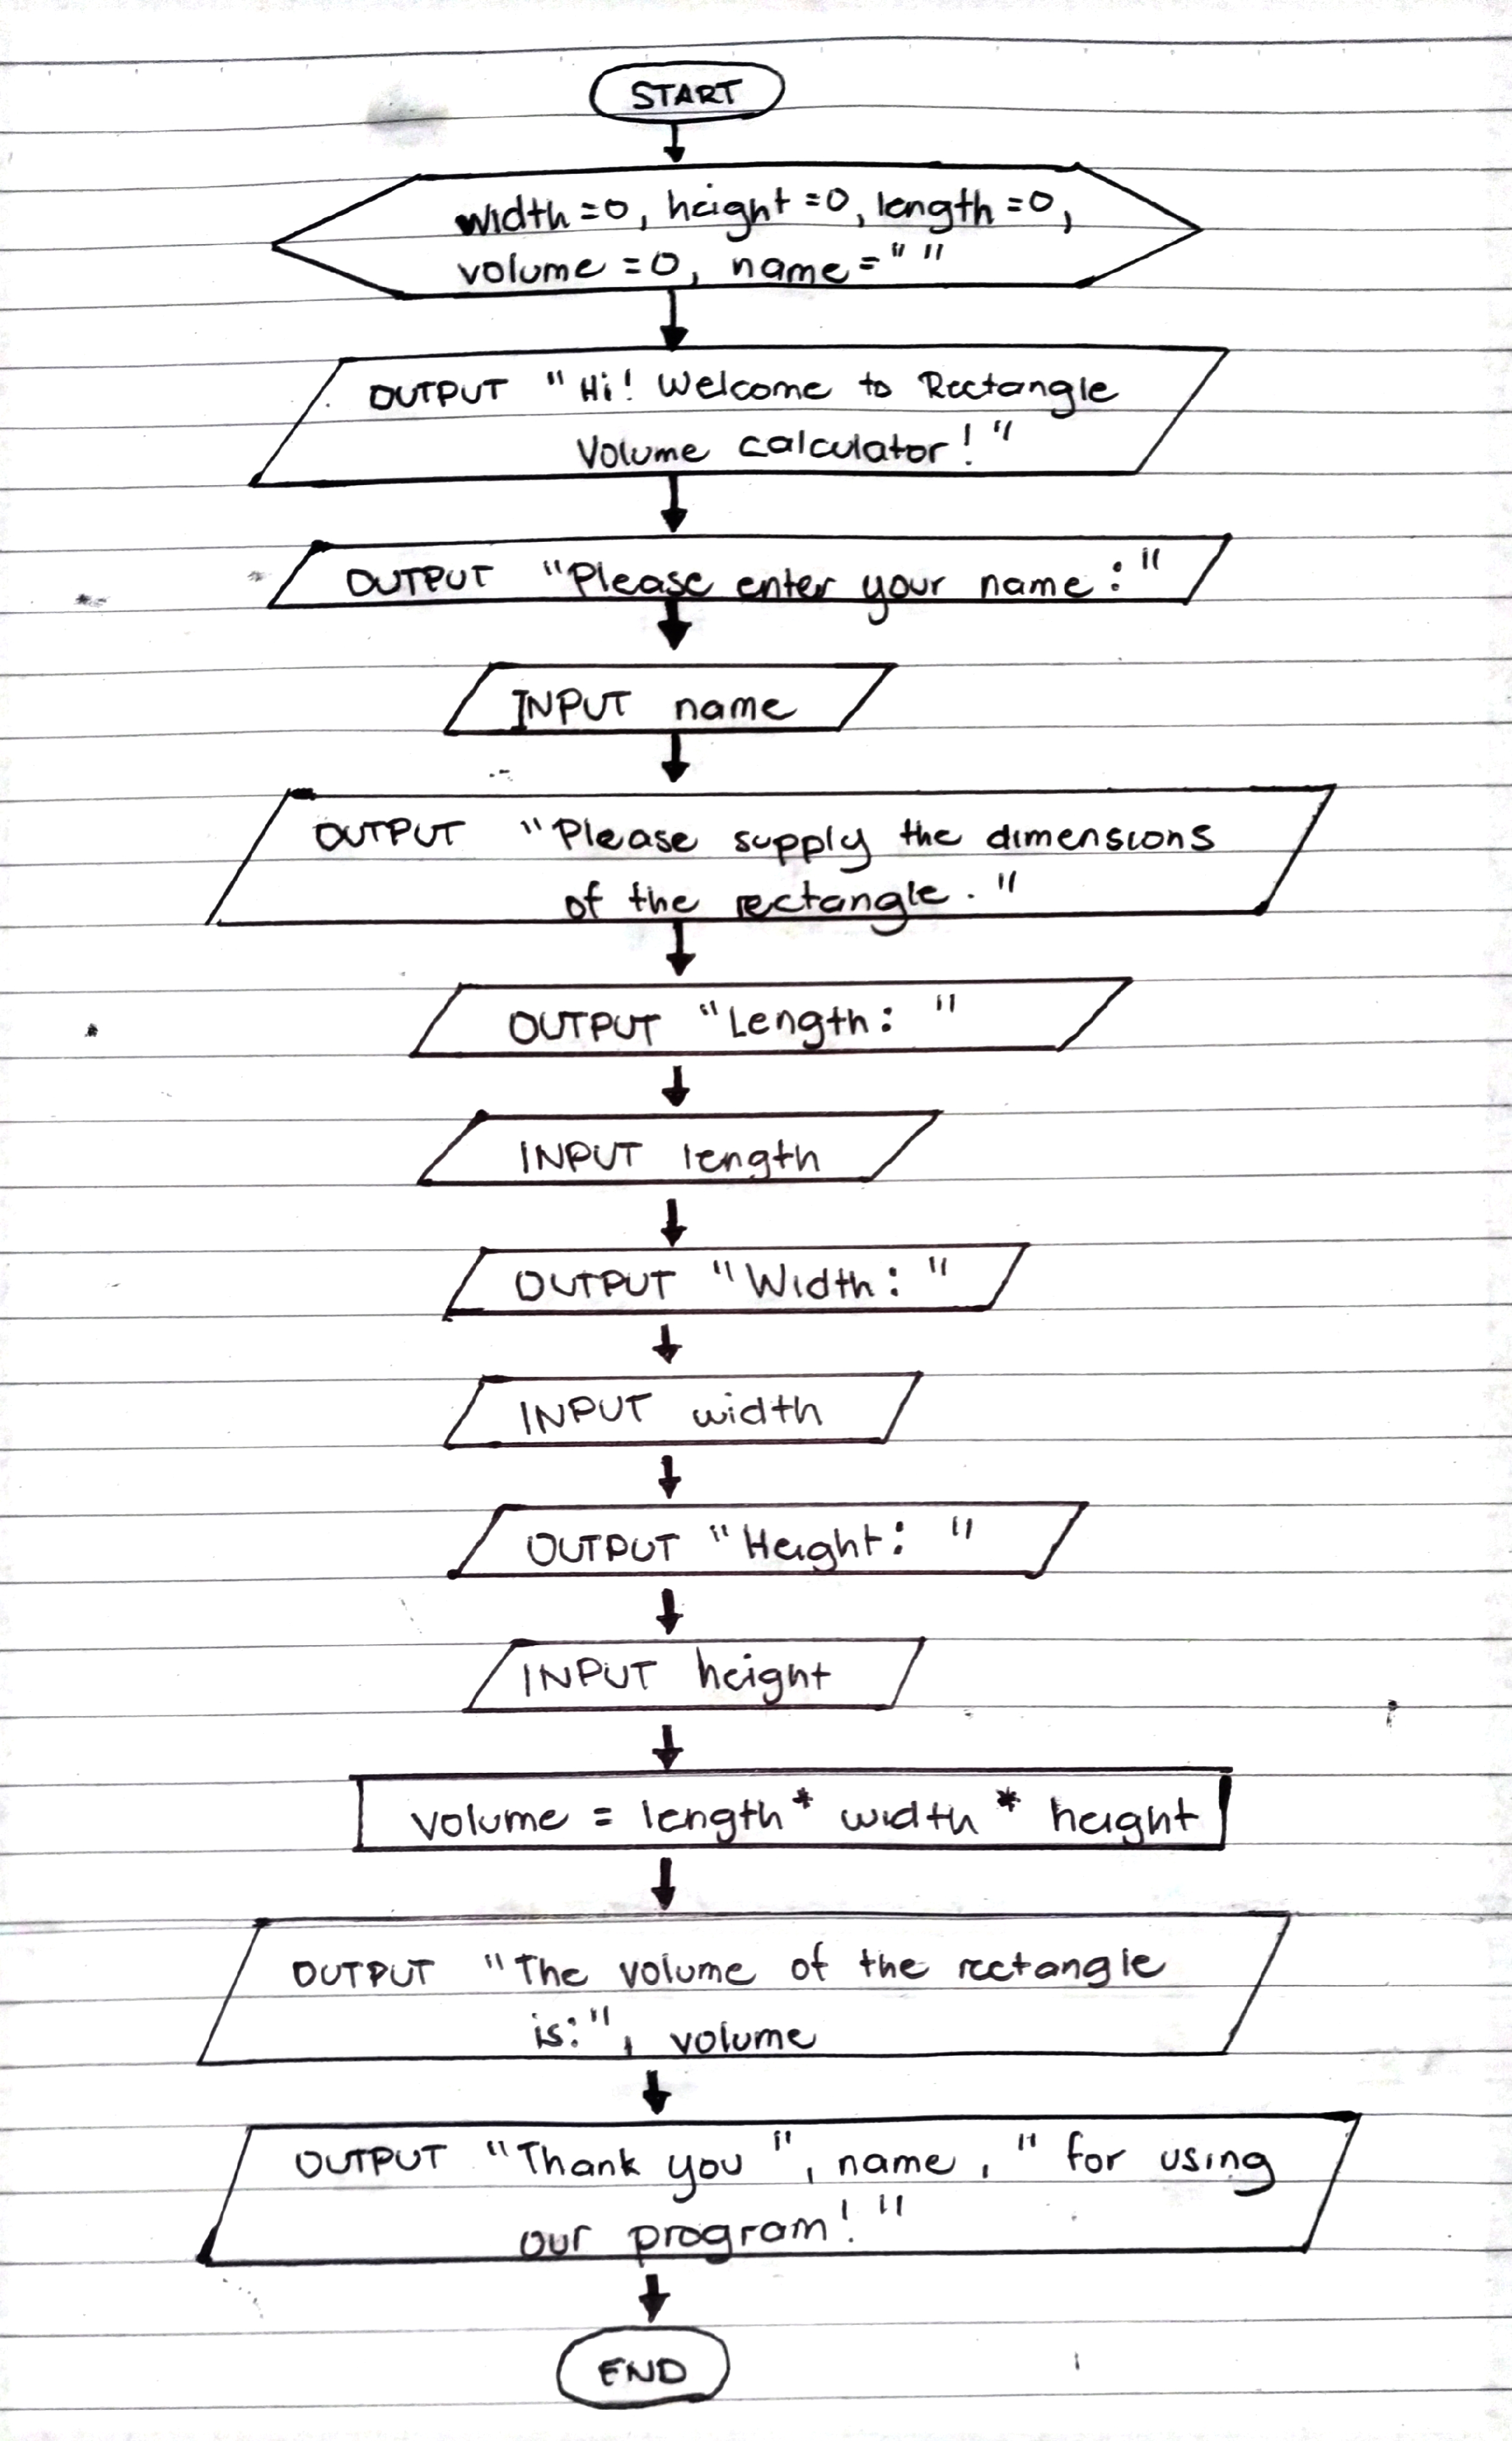 START
width=0, height=0, length=0,
volume=0, name=" "
OUTPUT "Hi! Welcome to Rectangle
Volume calculator!"
OUTPUT "Please enter your name:"
INPUT name
OUTPUT "Please supply the dimensions
of the rectangle."
OUTPUT "Length: "
INPUT length
OUTPUT "Width: "
INPUT width
OUTPUT "Height: "
INPUT height
volume = length * width * height
OUTPUT "The volume of the rectangle
is:", volume
OUTPUT "Thank you ", name, " for using
our program!"
END